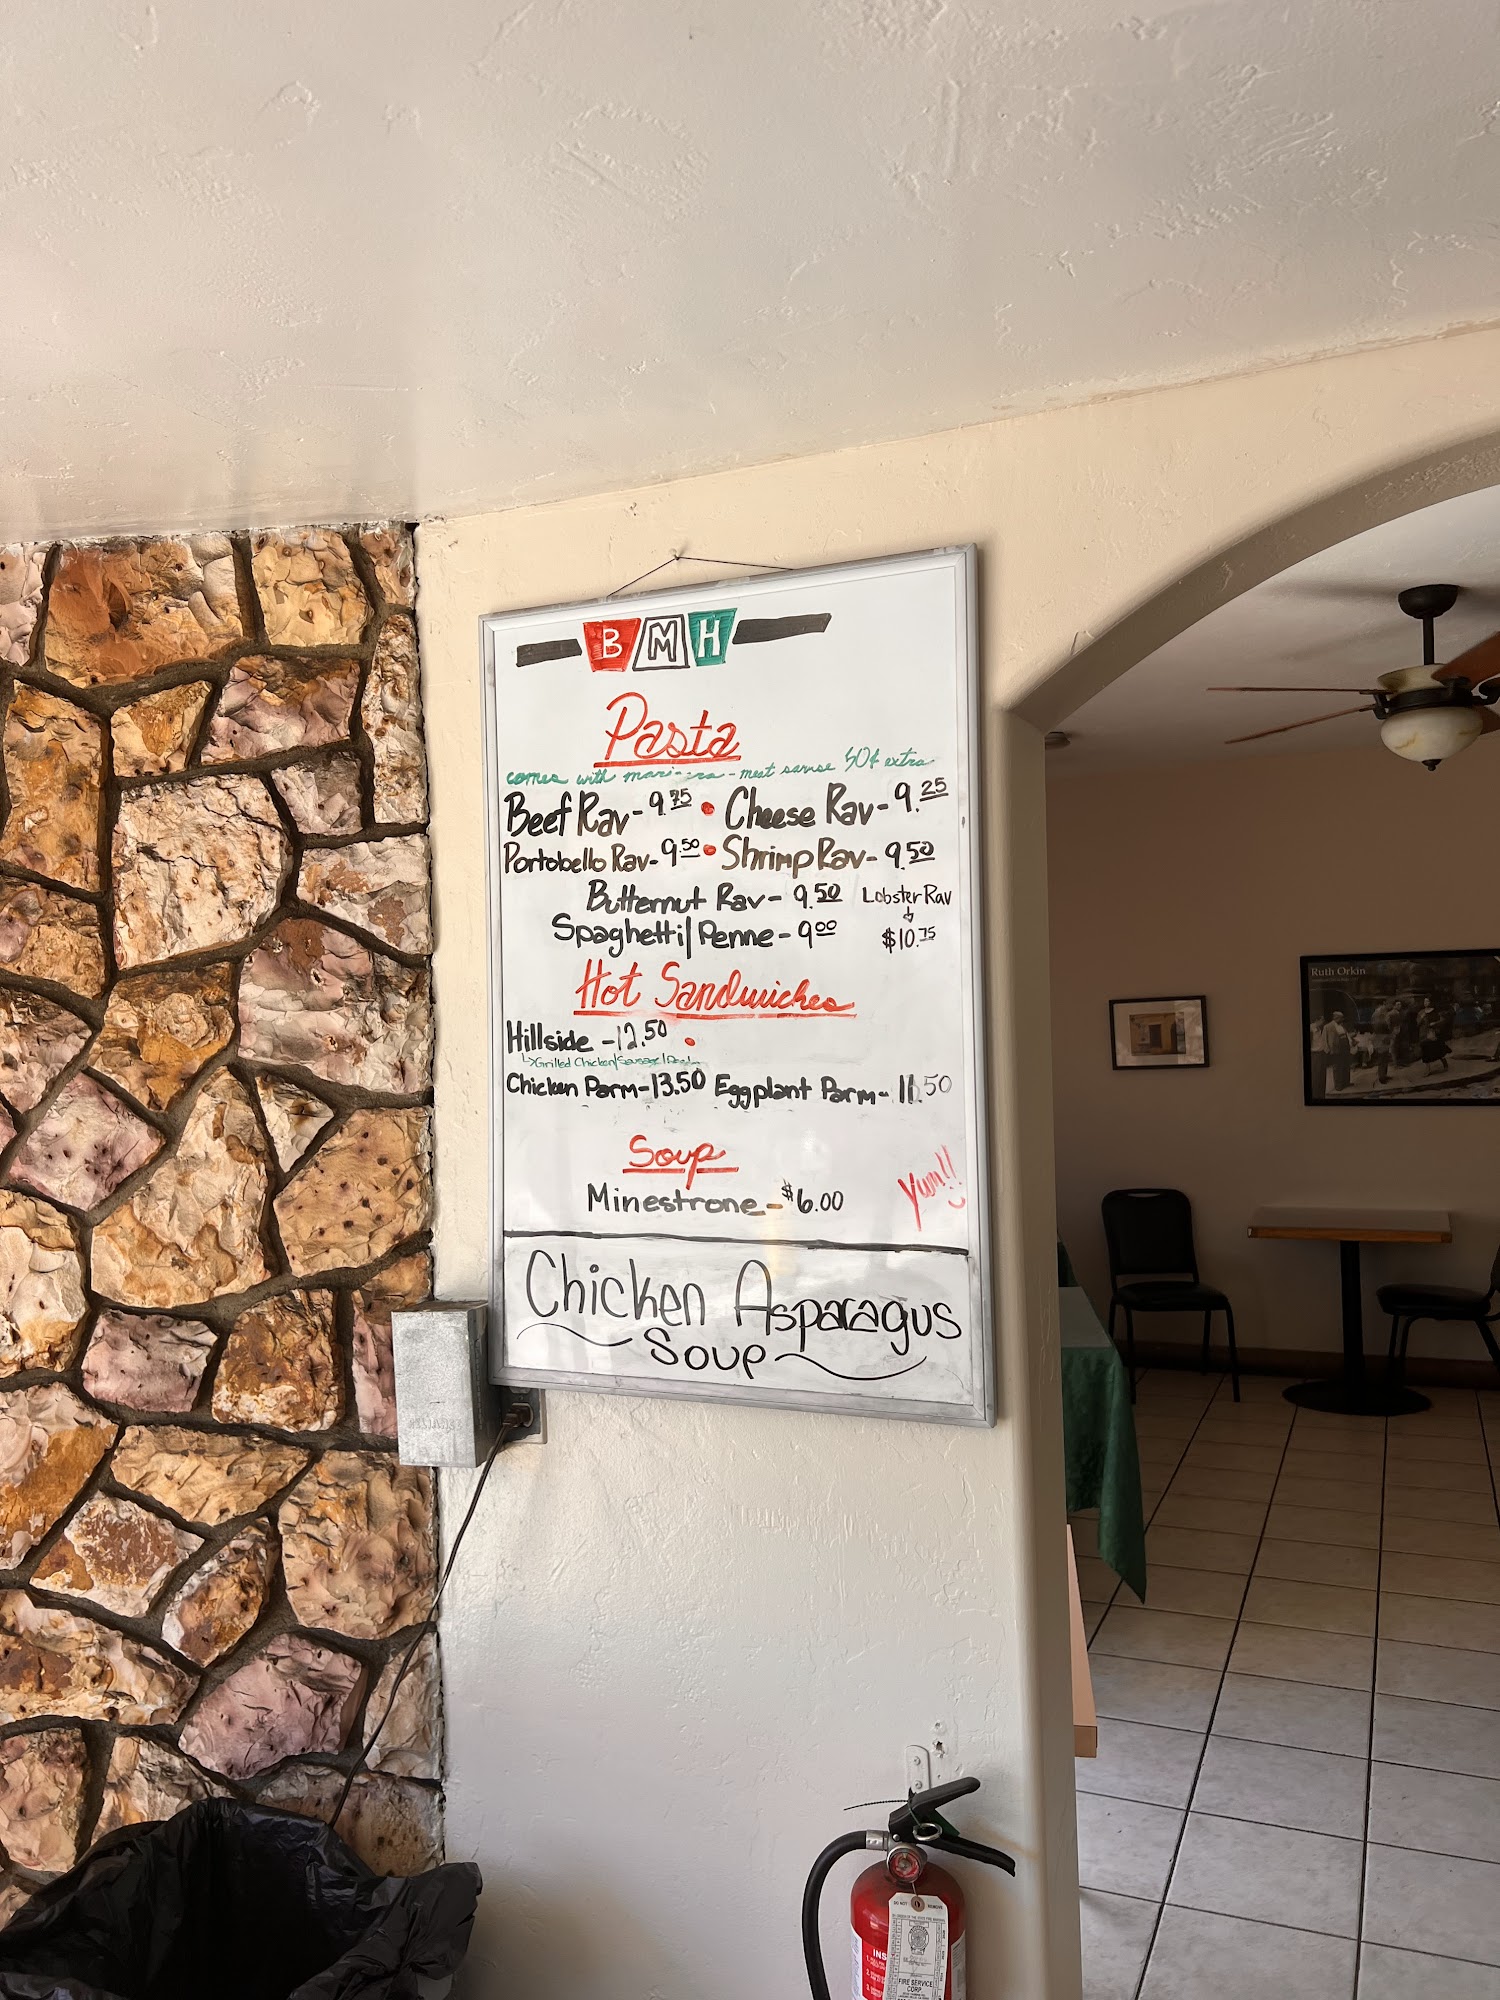 BMH
Pasta
comes with marinara - meat sauce 50¢ extra
Beef Rav - 9.75 • Cheese Rav - 9.25
Portobello Rav - 9.50 • Shrimp Rav - 9.50
Butternut Rav - 9.50 Lobster Rav
Spaghetti/Penne - 9.00 $10.75
Hot Sandwiches
Hillside - 12.50
Grilled Chicken/Sausage/
Chicken Parm - 13.50 Eggplant Parm - 11.50
Soup
Minestrone - $6.00
Yum!!
Chicken Asparagus
Soup
Ruth Orkin
DO NOT REMOVE
INS
FIRE SERVICE
CORP